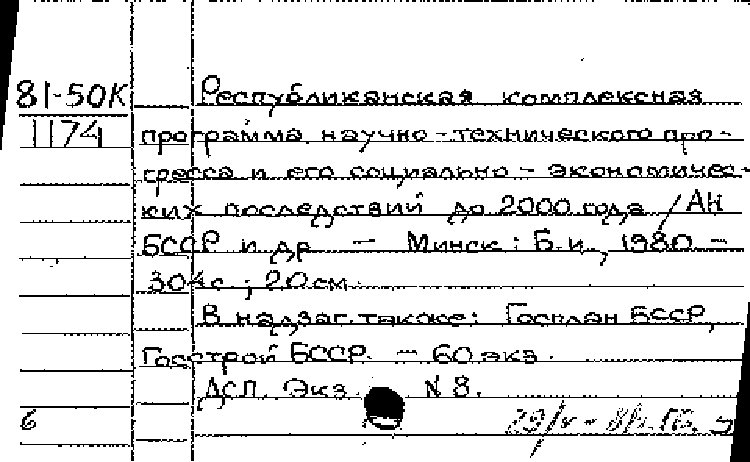 81-50К
1174
Республиканская комплексная
программа научно-технического про-
гресса и его социально-экономичес-
ких последствий до 2000 года / АН
БССР и др. — Минск: Б.и., 1980 -
304 с ; 20 см
В надзаг. также: Госплан БССР,
Госстрой БССР. — 60 экз.
ДСП. Экз. N 8.
6